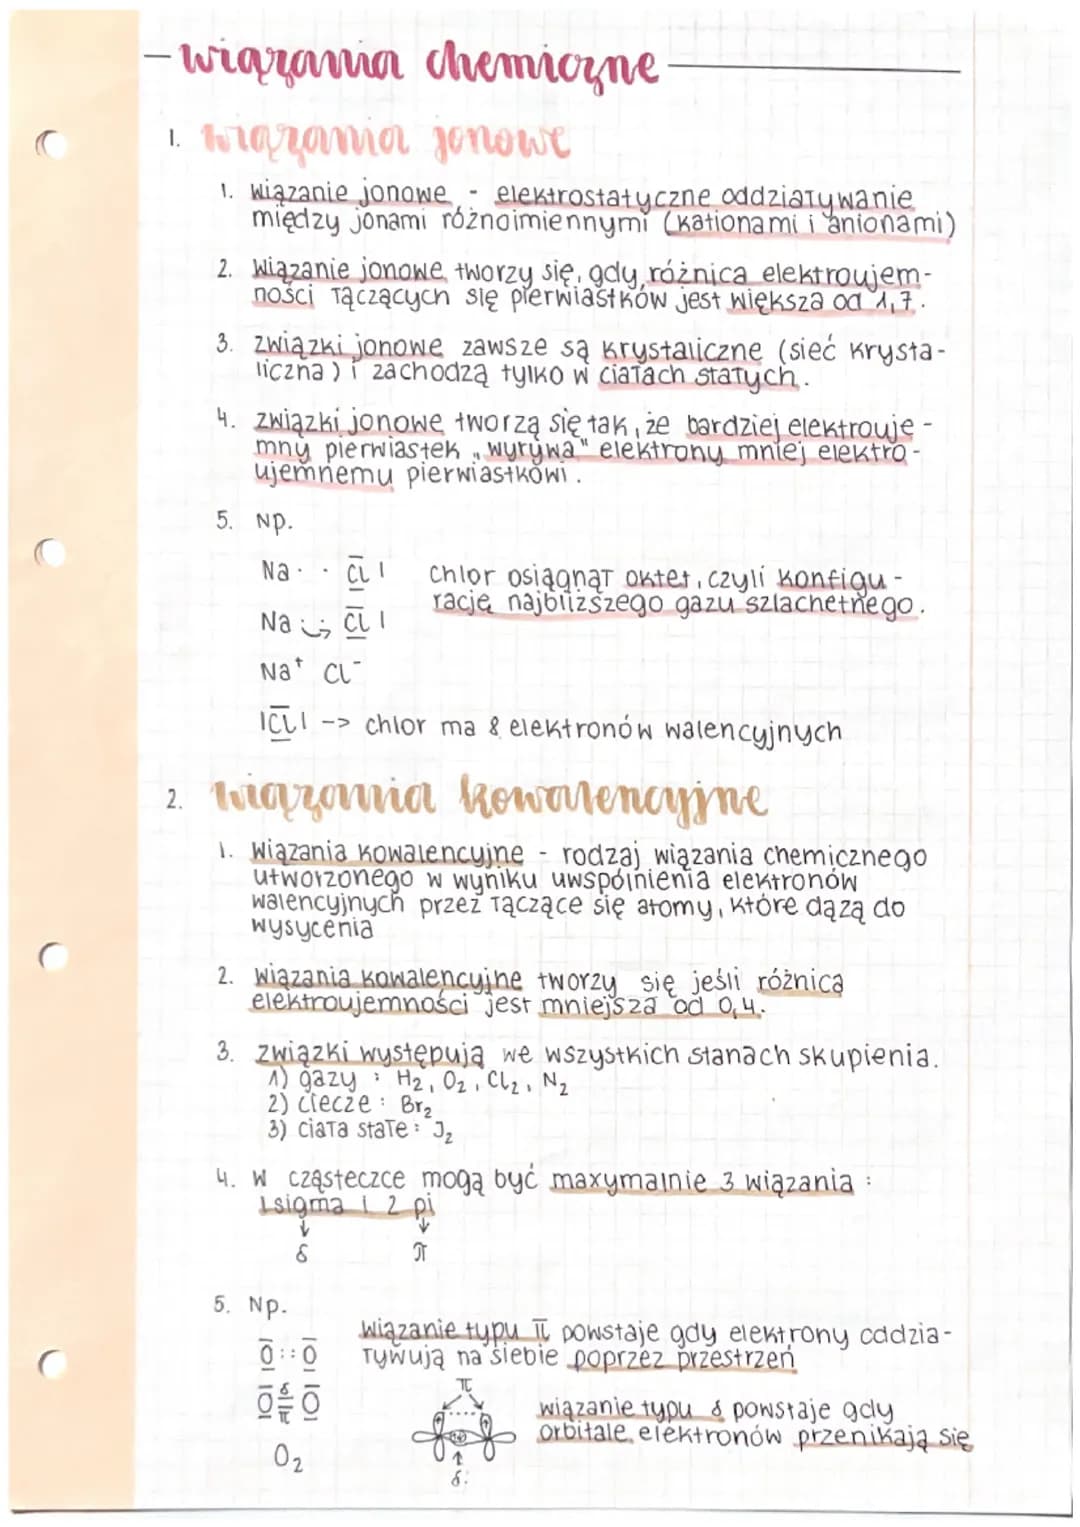 wiązania chemiczne
1. wiązania jonowe
1. Wiązanie jonowe - elektrostatyczne oddziaływanie
między jonami różnoimiennymi (kationami i anionami)
2. Wiązanie jonowe tworzy się, gdy różnica elektroujem-
ności łączących się pierwiastków jest większa od 1,7.
3. związki jonowe zawsze są krystaliczne (sieć krysta-
liczna) i zachodzą tylko w ciałach stałych.
4. związki jonowe tworzą się tak, że bardziej elektrouje-
mny pierwiastek „wyrywa" elektrony mniej elektro-
ujemnemu pierwiastkowi.
5. Np.
Na · · Cl | chlor osiągnął oktet, czyli konfigu-
rację najbliższego gazu szlachetnego.
Na · · Cl |
Na⁺ Cl⁻
|Cl| -> chlor ma 8 elektronów walencyjnych
2. wiązania kowalencyjne
1. Wiązania kowalencyjne - rodzaj wiązania chemicznego
utworzonego w wyniku uwspólnienia elektronów
walencyjnych przez łączące się atomy, które dążą do
wysycenia
2. Wiązania kowalencyjne tworzy się jeśli różnica
elektroujemności jest mniejsza od 0,4.
3. związki występują we wszystkich stanach skupienia.
1) gazy : H₂, O₂, Cl₂, N₂
2) ciecze : Br₂
3) ciała stałe : J₂
4. W cząsteczce mogą być maxymalnie 3 wiązania :
1 sigma i 2 pi
δ π
5. Np.
wiązanie typu π powstaje gdy elektrony oddzia-
ływują na siebie poprzez przestrzeń
O :: O
δ
O = O
π
O₂
π
δ.
wiązanie typu δ powstaje gdy
orbitale elektronów przenikają się